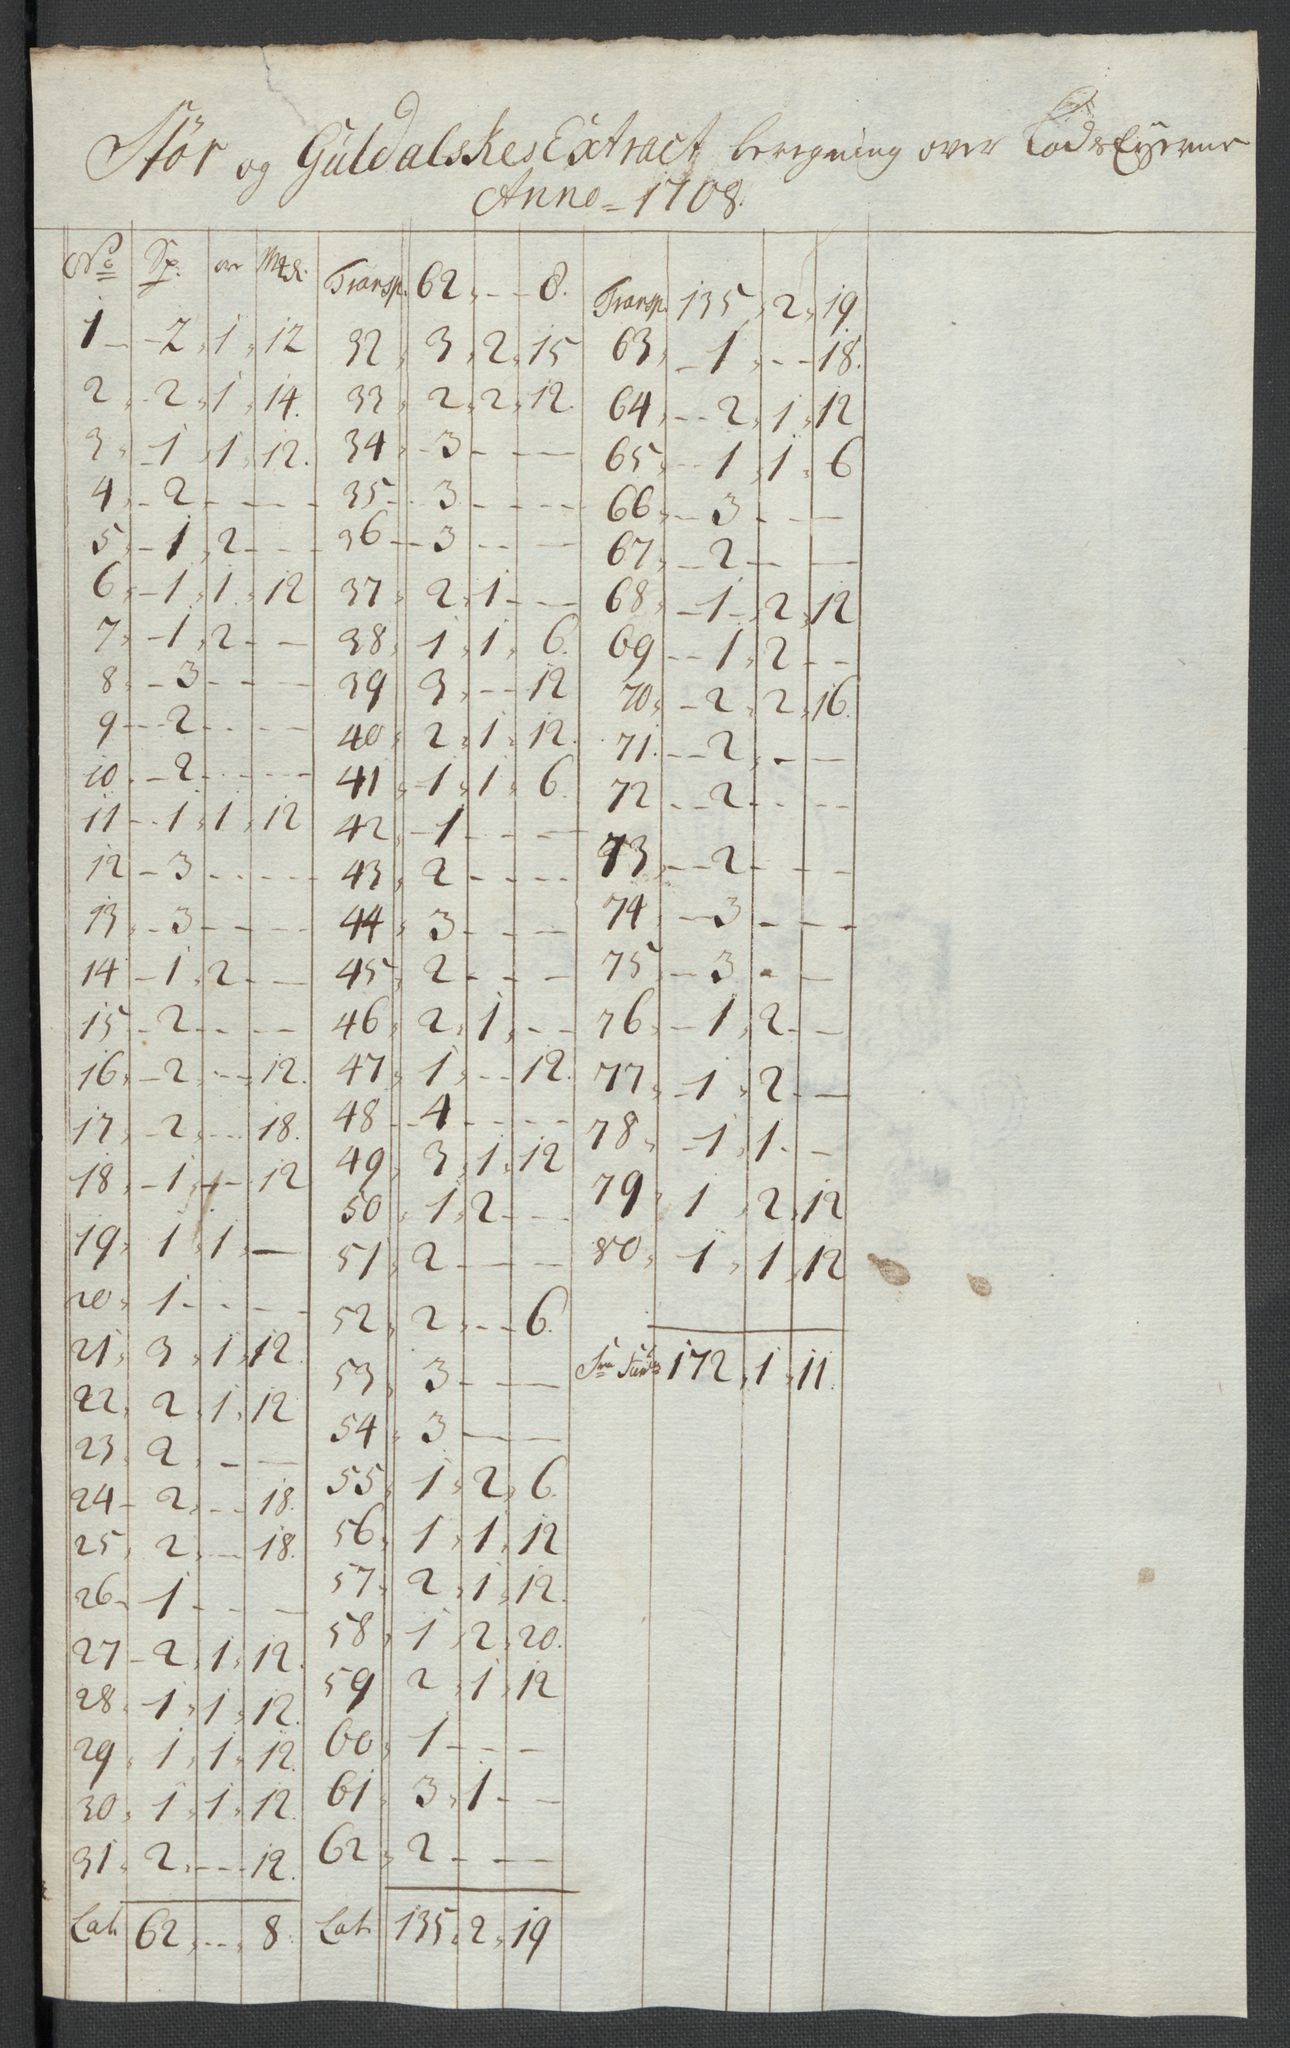 Stør og Guldalskes Extract beregning over Lodseÿerne
Anno = 1708.
No Sp. ore Mkl.
1 - 2, 1, 12
2, - 2, 1, 14.
3, - 1, 1, 12.
4, - 2 - - -
5, - 1, 2 - -
6, - 1, 1, 12
7, - 1, 2 - -
8, - 3 - - -
9 - - 2 - - -
10. - 2 - - -
11 - 1, 1, 12
12 - 3 - - -
13, - 3 - - -
14 - 1, 2 - -
15 - 2 - - -
16, - 2, - - 12.
17, - 2, - - 18.
18, - 1, 1 - 12
19, 1, 1, -
20, 1 - - -
21, 3, 1, 12.
22, 2, 1, 12
23, 2 - -
24 - 2, - - 18.
25, 2, - - 18.
26 - 1 - - -
27 - 2, 1, 12.
28, 1, 1, 12.
29, 1, 1, 12.
30, 1, 1, 12.
31, 2, - - 12.
Lat 62, - - 8.
Transp. 62, - - 8.
32, 3, 2, 15
33, 2, 2, 12.
34, 3 - - -
35 - 3 - - -
36 - 3 - - -
37, 2, 1 - -
38, 1, 1, 6.
39 3, - - 12
40, 2, 1, 12.
41, 1, 1, 6.
42, 1 - - -
43, 2 - - -
44, 3 - - -
45, 2 - - -
46, 2, 1, - -
47, 1, - - 12.
48 - 4 - - -
49, 3, 1, 12
50, 1, 2 - -
51, 2 - - -
52, 2, - - 6.
53, 3 - - -
54, 3 - - -
55, 1, 2, 6.
56, 1, 1, 12
57, 2, 1, 12.
58, 1, 2, 20.
59 2, 1, 12
60, 1 - - -
61, 3, 1 - -
62, 2 - - -
Lat 135, 2, 19
Transp. 135, 2, 19
63, - 1, - - 18.
64, - - 2, 1, 12
65, - - 1, 1, 6
66, - 3 - - -
67, - 2 - - -
68, - 1, 2, 12
69 - - 1, 2 - -
70, - 2, 2, 16.
71. - - 2, - -
72 - - 2 - - -
73, - - 2 - - -
74, - 3 - - -
75, - 3 - -
76, - 1, 2 - -
77, - 1, 2 - -
78, - 1, 1 - -
79, 1, 2, 12
80, 1, 1, 12
172, 1, 11.